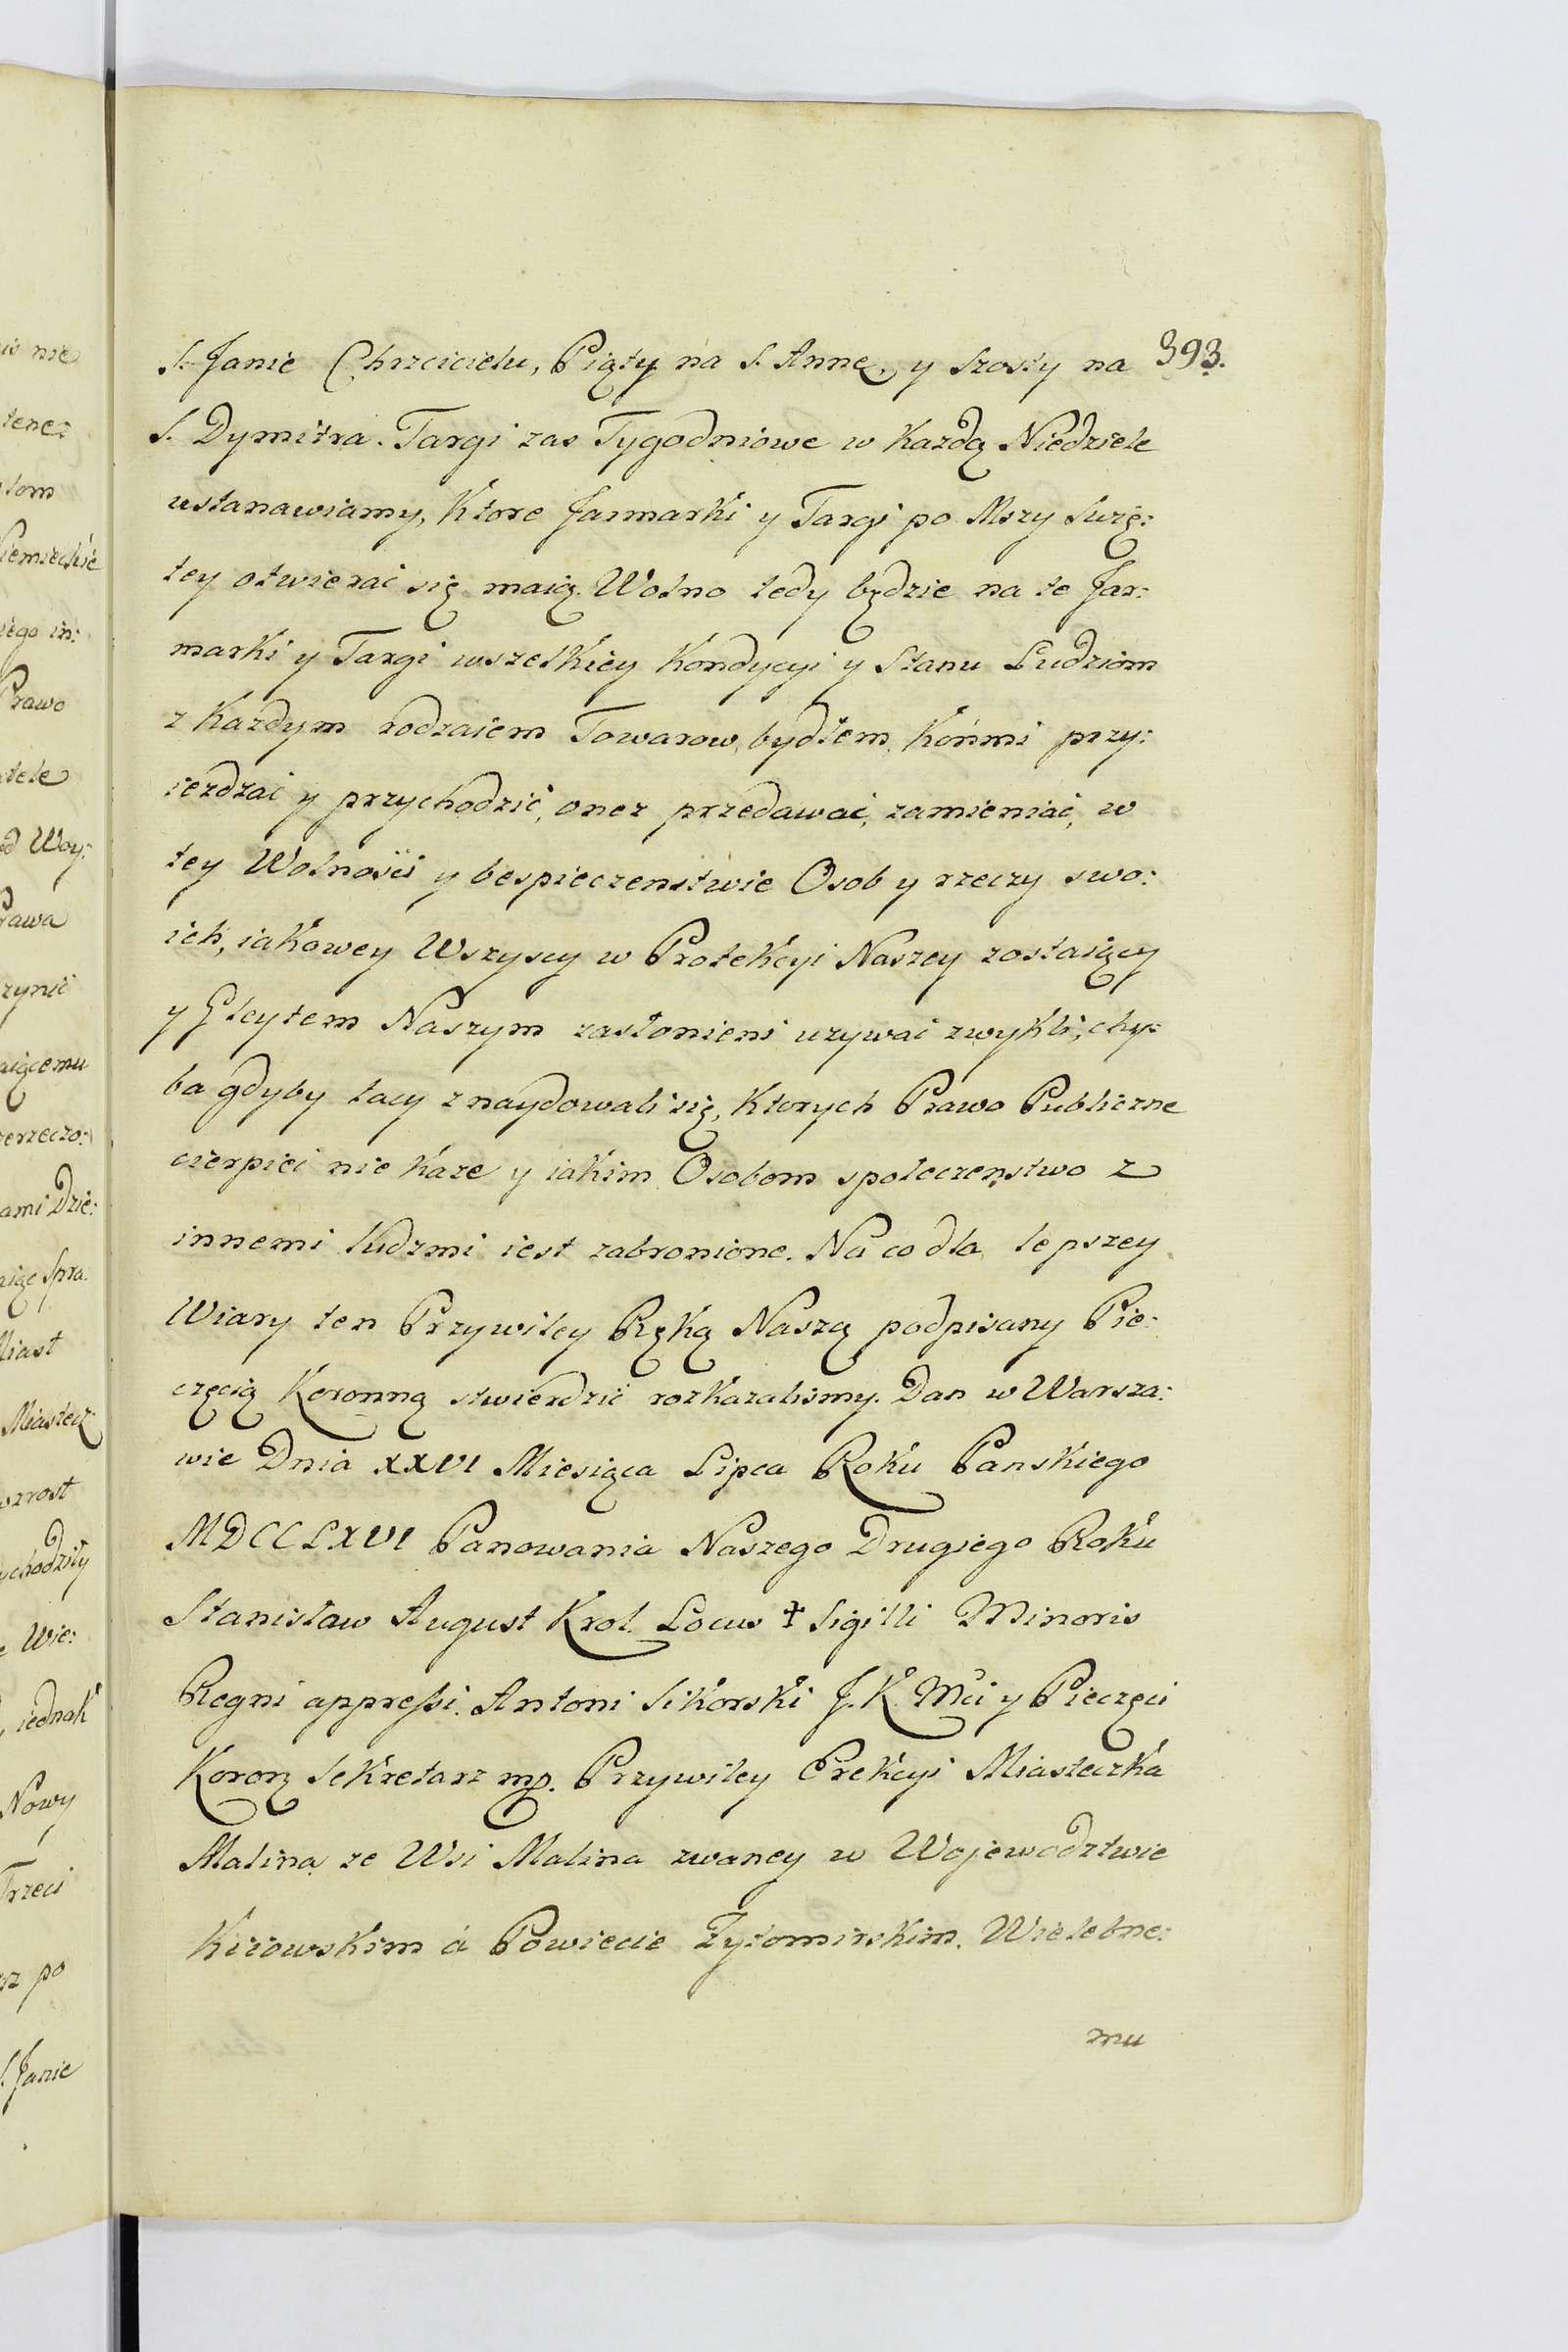 S. Janie Chrzcicielu, Piąty na S. Annę, y Szosty na 393.
S. Dymitra. Targi zas Tygodniowe w Każdą Niedziele
ustanawiamy, Ktore Jarmarki y Targi po Mszy Swię:
tey otwierać się maią. Wolno tedy będzie na te Jar:
marki y Targi wszelkiey Kondycyi y Stanu Ludziom
z Kazdym rodzaiem Towarow, bydłem, Końmi przy:
iezdzać y przychodzić, onez przedawać, zamieniać, w
tey Wolnosci y bespieczenstwie Osob y rzeczy swo:
ich, iakowey Wszyscy w Protekcyi Naszey zostaiący
y Gleytem Naszym zasłonieni uzywać zwykli, chy:
ba gdyby tacy znaydowali się, Ktorych Prawo Publiczne
cierpieć nie Kaze y iakim Osobom społeczenstwo z
innemi ludzmi iest zabronione. Na co dla lepszey
Wiary ten Przywiley Ręką Naszą podpisany Pie:
częcią Koronną stwierdzić rozkazalismy. Dan w Warsza:
wie Dnia XXVI Miesiąca Lipca Roku Panskiego
MDCCLXVI Panowania Naszego Drugiego Roku
Stanisław August Krol. Locus ☩ Sigilli Minoris
Regni appreſsi. Antoni Sikorski J. K. Mci y Pieczęci
Koron Sekretarz mp. Przywiley Erekcyi Miasteczka
Malina ze Wsi Malina zwaney w Wojewodztwie
Kiiowskim a Powiecie Zytomirskim. Wielebne:
mu
is nie
tenez
tom
iego in:
Prawo
tele
d Woy:
rawa
zynić
aiącemu
erzeczo:
ami Dzie:
aiąc Spra
Miast
Miastecz
wzrost
ychodziły
e Wie:
, iednak
Nowy
Trzeci
rz po
S. Janie